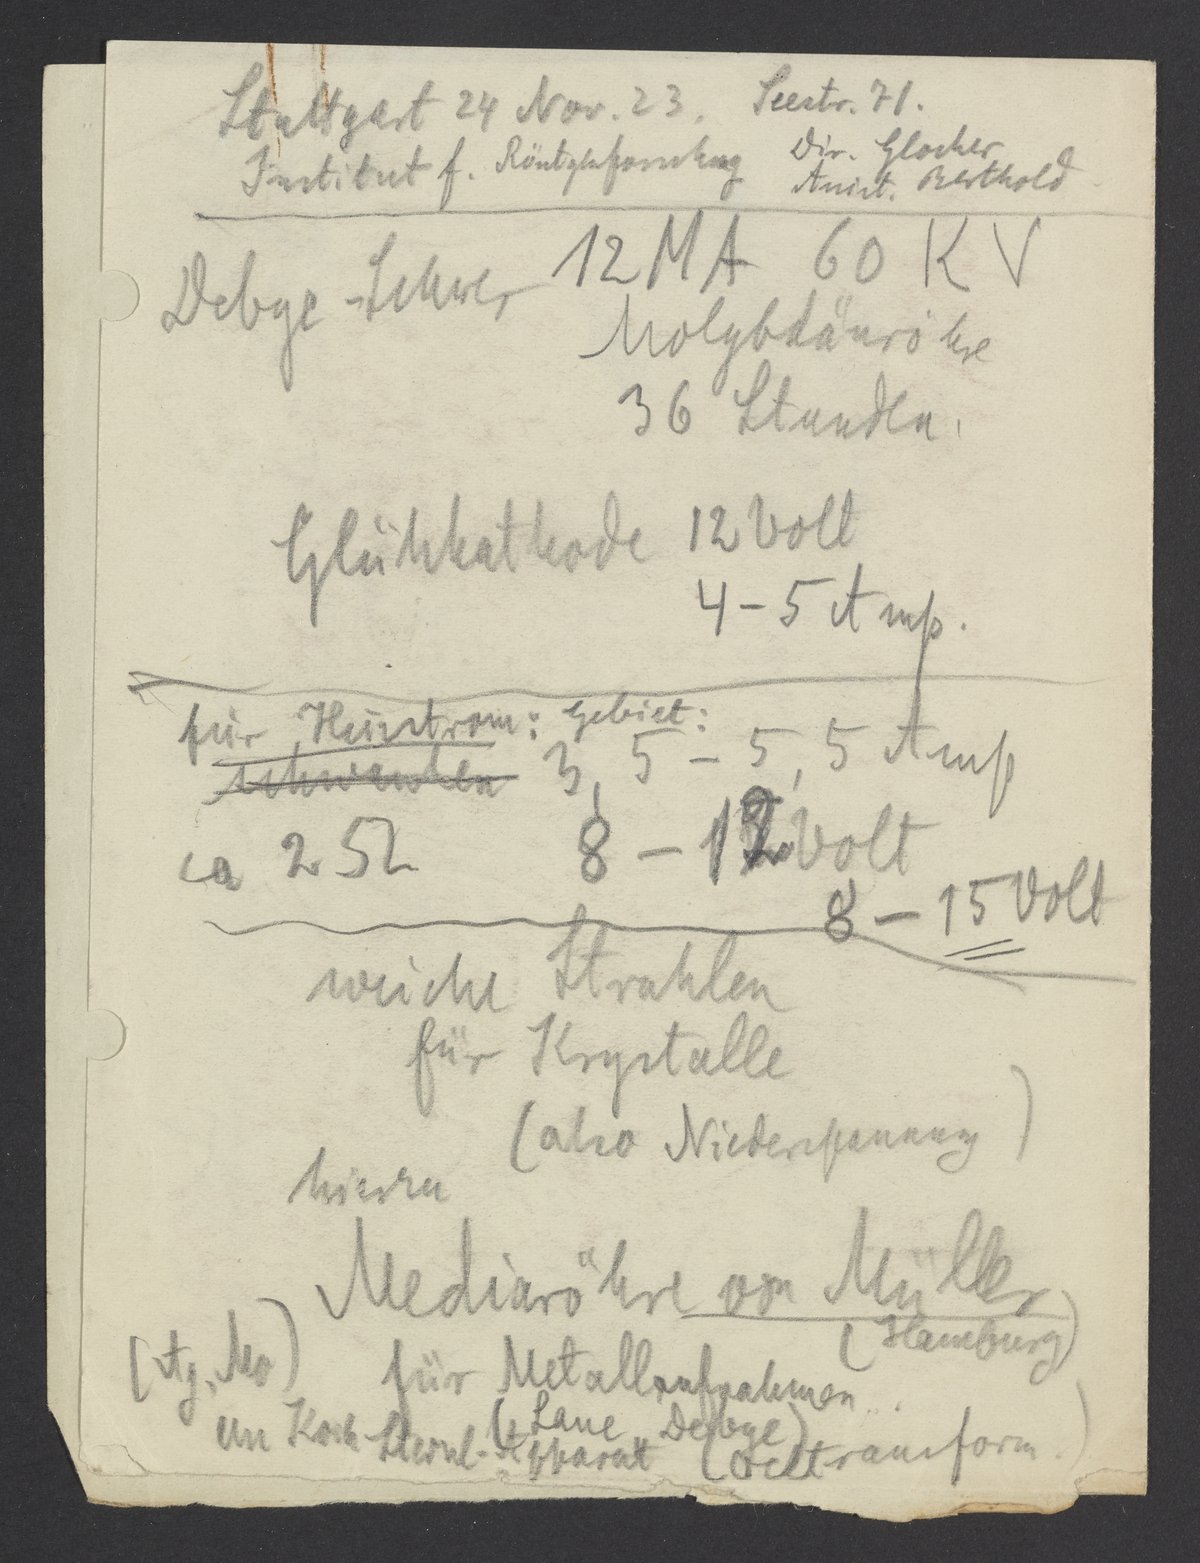 Stuttgart 24 Nov. 23. Seestr. 71.
Institut f. Röntgenforschung Dir. Glocker
Assist. Berthold
Debye-Scherrer 12 MA 60 KV
Molybdänröhre
36 Stunden
Glühkathode 12 Volt
4-5 Amp.
für Heizstrom: Gebiet:
schwanken 3,5 - 5,5 Amp
ca 2 8 - 12 Volt
8 - 15 Volt
weiche Strahlen
für Krystalle
(also Niederspannung)
hierzu
Mediaröhre von Müller
(Hamburg)
(Ag, Mo) für Metallaufnahmen
(Laue Debye)
Koch-Sterzel-Apparat (Oeltransform.)